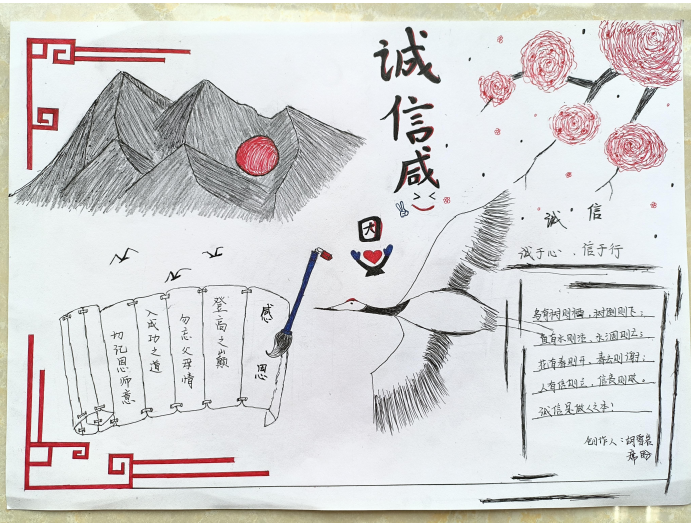 诚信感恩
诚信
诚于心 信于行
感恩
登高之巅
勿忘父母情
入成功之道
切记恩师意
鸟有树则栖，树倒则飞；
鱼有水则活，水涸则亡；
花有春则开，春去则谢；
人有信则立，信丧则败。
诚信是做人之本！
创作人：胡